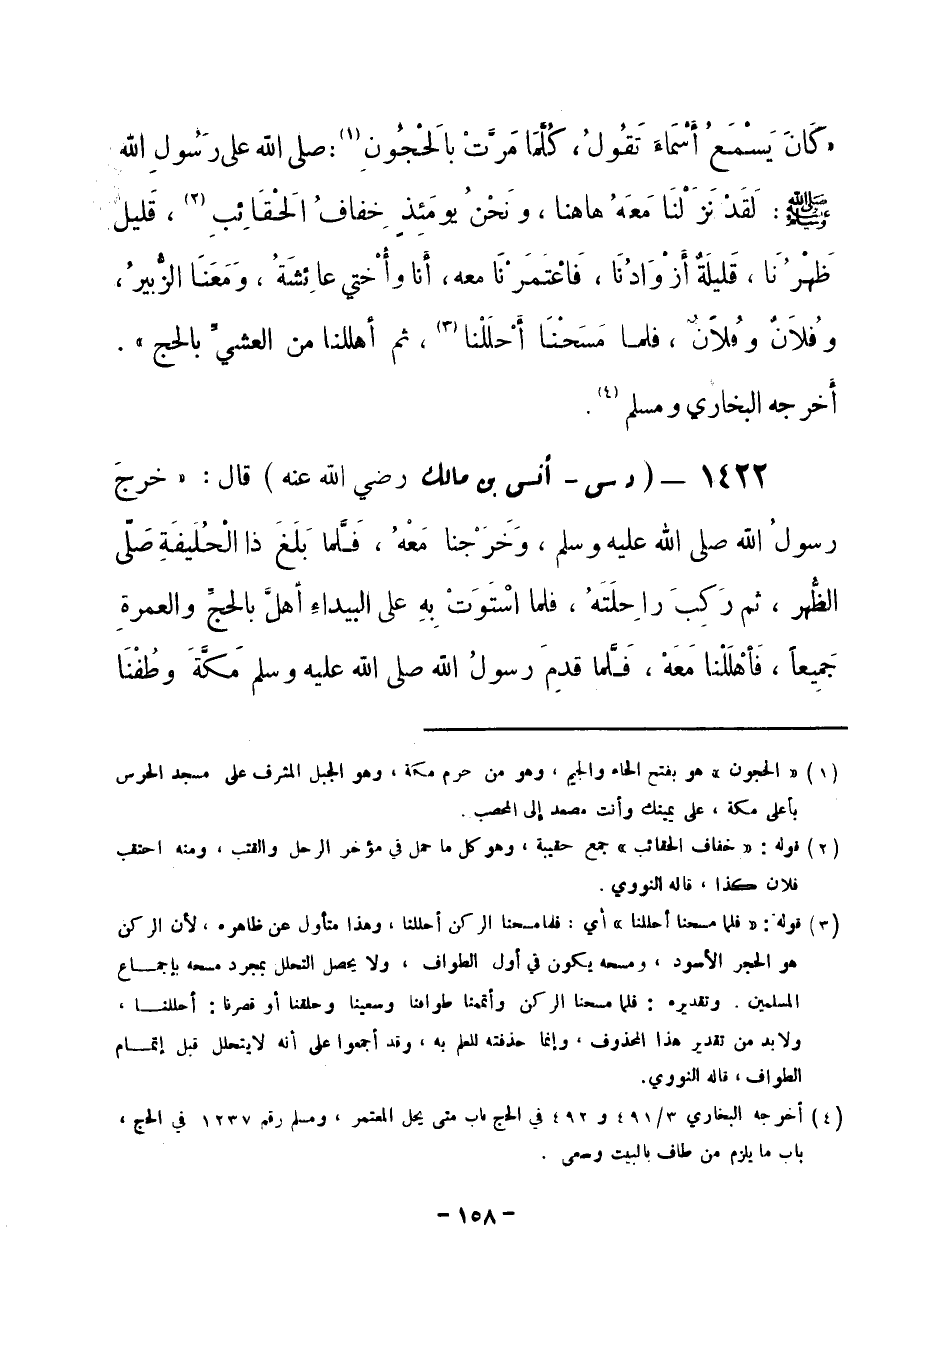 « كَانَ يَسْمَعُ أَسْمَاءَ تَقُولُ ، كُلَّمَا مَرَّتْ بالْحَجُونِ (١) : صلى الله على رَسُولِ الله
ﷺ : لَقَدْ نَزَلْنَا مَعَهُ هاهنا ، وَنَحْنُ يومَئِذٍ خِفافُ الحَقَائِبِ (٢) ، قَليلٌ
ظَهْرُنا ، قَليلَةٌ أَزْوَادُنَا ، فَاعْتَمَرْنَا معه ، أنا وأُختي عائشَةُ ، وَمَعَنَا الزُّبيرُ ،
وَفُلاَنٌ وَفُلاَنٌ ، فلمـا مَسَحْنَا أَحْلَلْنا (٣) ، ثم أهللنا من العشيِّ بالحج » .
أخرجه البخاري ومسلم (٤) .
١٤٢٢ – ( د س - أنس بن مالك رضي الله عنه ) قال : « خرجَ
رسولُ الله صلى الله عليه وسلم ، وَخَرَجْنا مَعَهُ ، فَلَّما بَلَغَ ذا الْحُلَيفَةِ صَلَّى
الظُّهر ، ثم رَكِبَ راحِلَتَهُ ، فلما اسْتَوَتْ بِهِ على البيداءِ أهلَّ بالحَجِّ والعمرةِ
جَمِيعاً ، فَأَهْلَلْنا مَعَهُ ، فَلَّما قدمَ رسولُ الله صلى الله عليه وسلم مَكَّةَ وطُفْنَا
(١) « الحجون » هو بفتح الحاء والجيم ، وهو من حرم مكة ، وهو الجبل المشرف على مسجد الحرس
بأعلى مكة ، على يمينك وأنت مصعد إلى المحصب .
(٢) قوله : « خفاف الحقائب » جمع حقيبة ، وهو كل ما حمل في مؤخر الرحل والقتب ، ومنه احتقب
فلان كذا ، قاله النووي .
(٣) قوله : « فلما مسحنا أحللنا » أي : فلما مسحنا الركن أحللنا ، وهذا متأول عن ظاهره ، لأن الركن
هو الحجر الأسود ، ومسحه يكون في أول الطواف ، ولا يحصل التحلل بمجرد مسحه بإجمـاع
المسلمين . وتقديره : فلما مسحنا الركن وأتممنا طوافنا وسعينا وحلقنا أو قصرنا : أحللنـا ،
ولابد من تقدير هذا المحذوف ، وإنما حذفته للعلم به ، وقد أجمعوا على أنه لايتحلل قبل إتمـام
الطواف ، قاله النووي.
(٤) أخرجه البخاري ٤٩١/٣ و ٤٩٢ في الحج باب متى يحل المعتمر ، ومسلم رقم ١٢٣٧ في الحج ،
باب ما يلزم من طاف بالبيت وسعى .
- ١٥٨ -